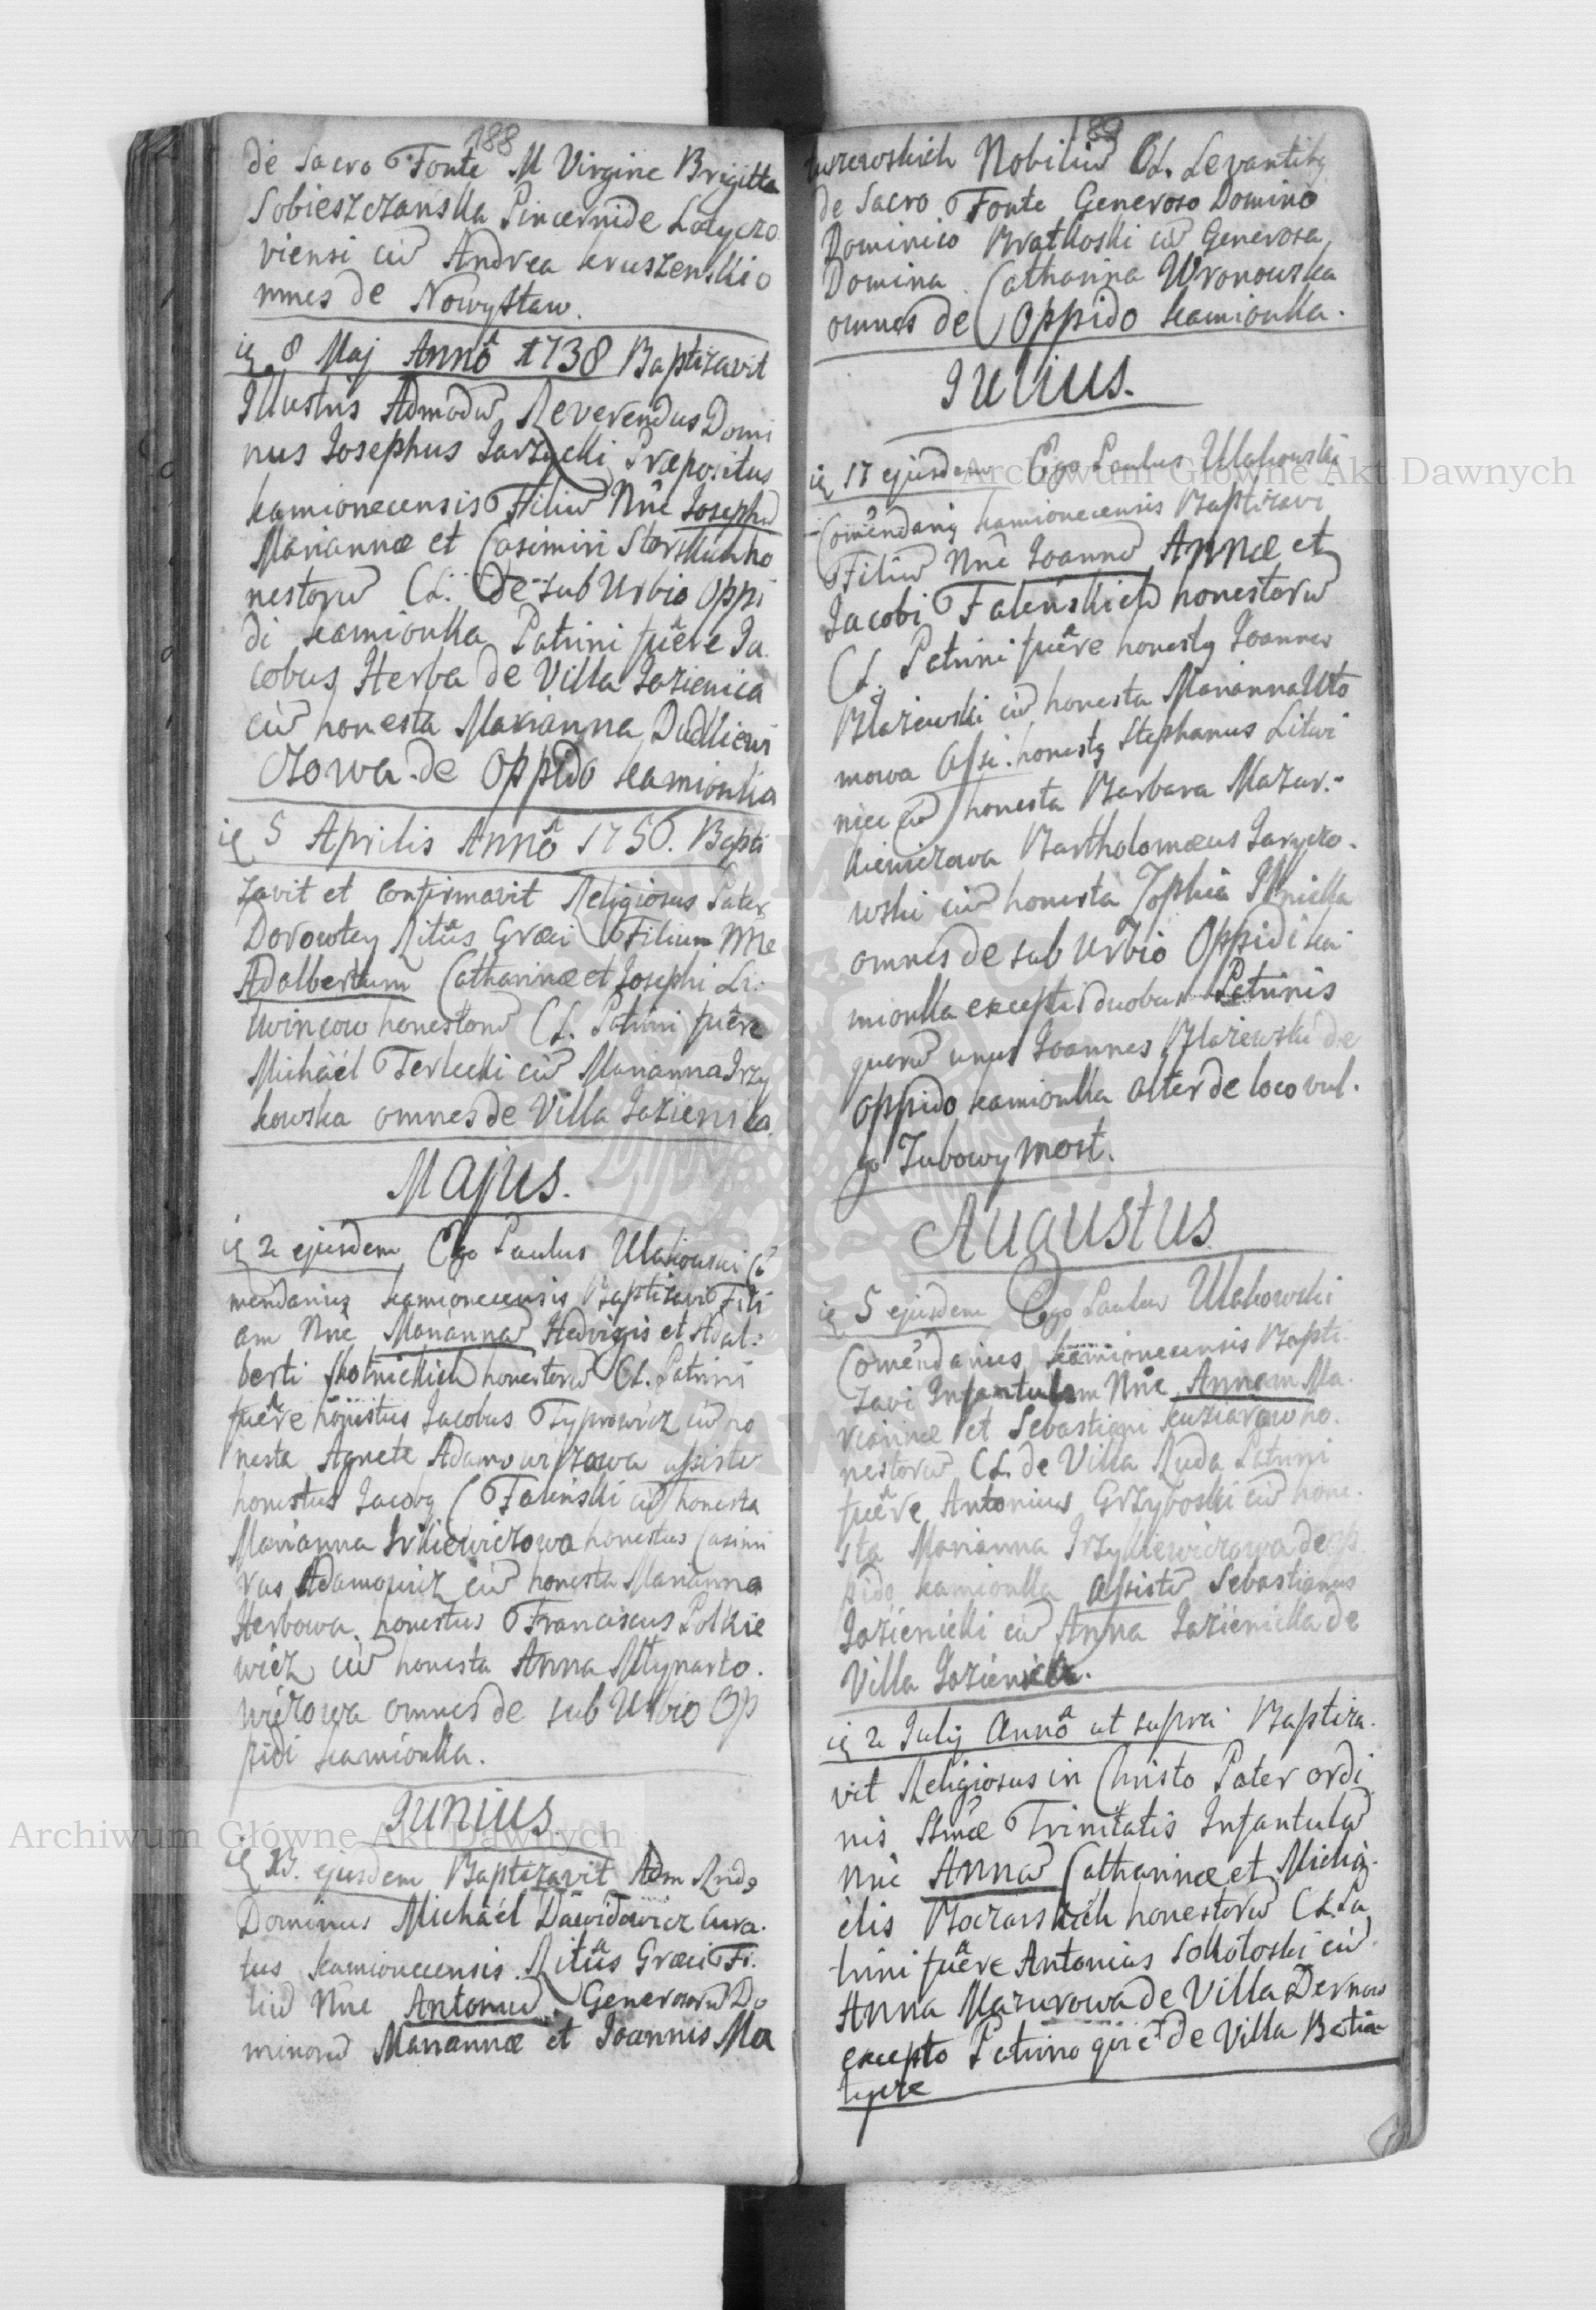 188
de Sacro Fonte M Virgine Brigitta
Sobieszczanska Pincernide Latyczo
viensi cũ Andrea Kruszenski o
mnes de Nowystaw.
8 Maj Annô 1738 Baptizavit
Illustris Admodũ Reverendus Domi
nus Iosephus Jarzycki Præpositus
Kamionecensis Filiũ Nñe Iosephũ
Mariannæ et Casimiri Storskich ho
nestorũ CL. de sub Urbio Oppi
di Kamionka Patrini fuêre Ja
cobus Herba de Villa Jazienica
cũ honesta Marianna Dudkiewi
czowa de Oppido Kamionka
5 Aprilis Annô 1750. Bapti
zavit et confirmavit Religiosus Pater
Dorowtey Ritûs Græci Filium Nñe
Adalbertum Catharinæ et Josephi Li:
twincow honestorũ CL. Patrini fuêre
Michaél Terlecki cũ Marianna Irzy
kowska omnes de Villa Jazienica
Majus.
2 ejusdem Ego Paulus Ulakowski Cõ
mendarius Kamionecensis Baptizavi Fili
am Nñe Mariannũ Hedvigis et Adal:
berti Skotnickich honestorũ CL. Patrini
fuêre honestus Jacobus Typrowicz cũ ho
nesta Agnete Adamowiczowa assistẽ
honestus Jacobq Falenski cũ honesta
Marianna Irzkiewiczowa honestus Casimi
rus Adamowicz cũ honesta Marianna
Herbowa honestus Franciscus Polkie
wicz cũ honesta Anna Młynarto.
wiczowa omnes de sub Urbio Op
pidi Kamionka.
Junius
13. ejusdem Baptizavit Adm Rndq
Dominus Michaél Dawidowicz Cura.
tus Kamionecensis Ritûs Græci Fi.
liũ Nñe Antoniũ Generosorũ Do
minorũ Mariannæ et Joannis Ma
189
wszewskich Nobiliũ CL. Levantibq
de Sacro Fonte Generoso Domino
Dominico Bratkoski cũ Generosa
Domina Catharina Wronowska
omnes de Oppido Kamionka.
Julius.
17 ejusdem Ego Paulus Ulakowski
Comẽndariq Kamionecensis Baptizavi
Filiũ Nñe Joannũ Annæ et
Jacobi Falenskich honestorũ
CL. Patrini fuêre honestq Joannes
Błażewski cũ honesta Marianna Uto
mowa Assi. honestq Stephanus Litwi
niec cũ honesta Barbara Mazur.
kiewiczowa Bartholomæus Jaryczo.
wski cũ honesta Zophia Ilnicka
omnes de sub Urbio Oppidi Ka
mionka exceptis duobus Patrinis
quorũ unus Joannes Błażewski de
Oppido Kamionka alter de loco vul.
go Zubowy most.
Augustus
5 ejusdem Ego Paulus Ulakowski
Comẽndarius Kamionecensis Bapti
zavi Infantulam Nñe Annam Ma.
riannæ et Sebastiani Kuziarow ho.
nestorũ CL. de Villa Ruda Patrini
fuêre Antonius Grzyboski cũ hone.
sta Marianna Irzykiewiczowa de Op
pido Kamionka Assistẽ Sebastianus
Jazienicki cũ Anna Jazienicka de
Villa Jazienica.
2 Julij Annô ut supra Baptiza.
vit Religiosus in Christo Pater ordi
nis Ssmæ Trinitatis Infantulã
Nñe Annũ Catharinæ et Micha.
élis Boczarskich honestorũ CL. Pa
trini fuêre Antonius Sokołoski cũ
Anna Mazurowa de Villa Dernow
excepto Patrino qui ẽ de Villa Batia
tycze
Archiwum Główne Akt Dawnych
Archiwum Główne Akt Dawnych